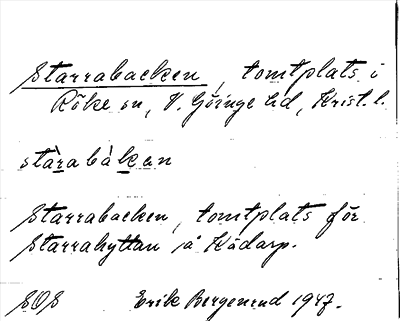 Starrabacken, tomtplats i
Röke sn, V. Göinge hd, Krist. l.
stàrabàkan
Starrabacken, tomtplats för
Starrahyttan på Kådarp.
SOS Erik Bergenrud 1947.